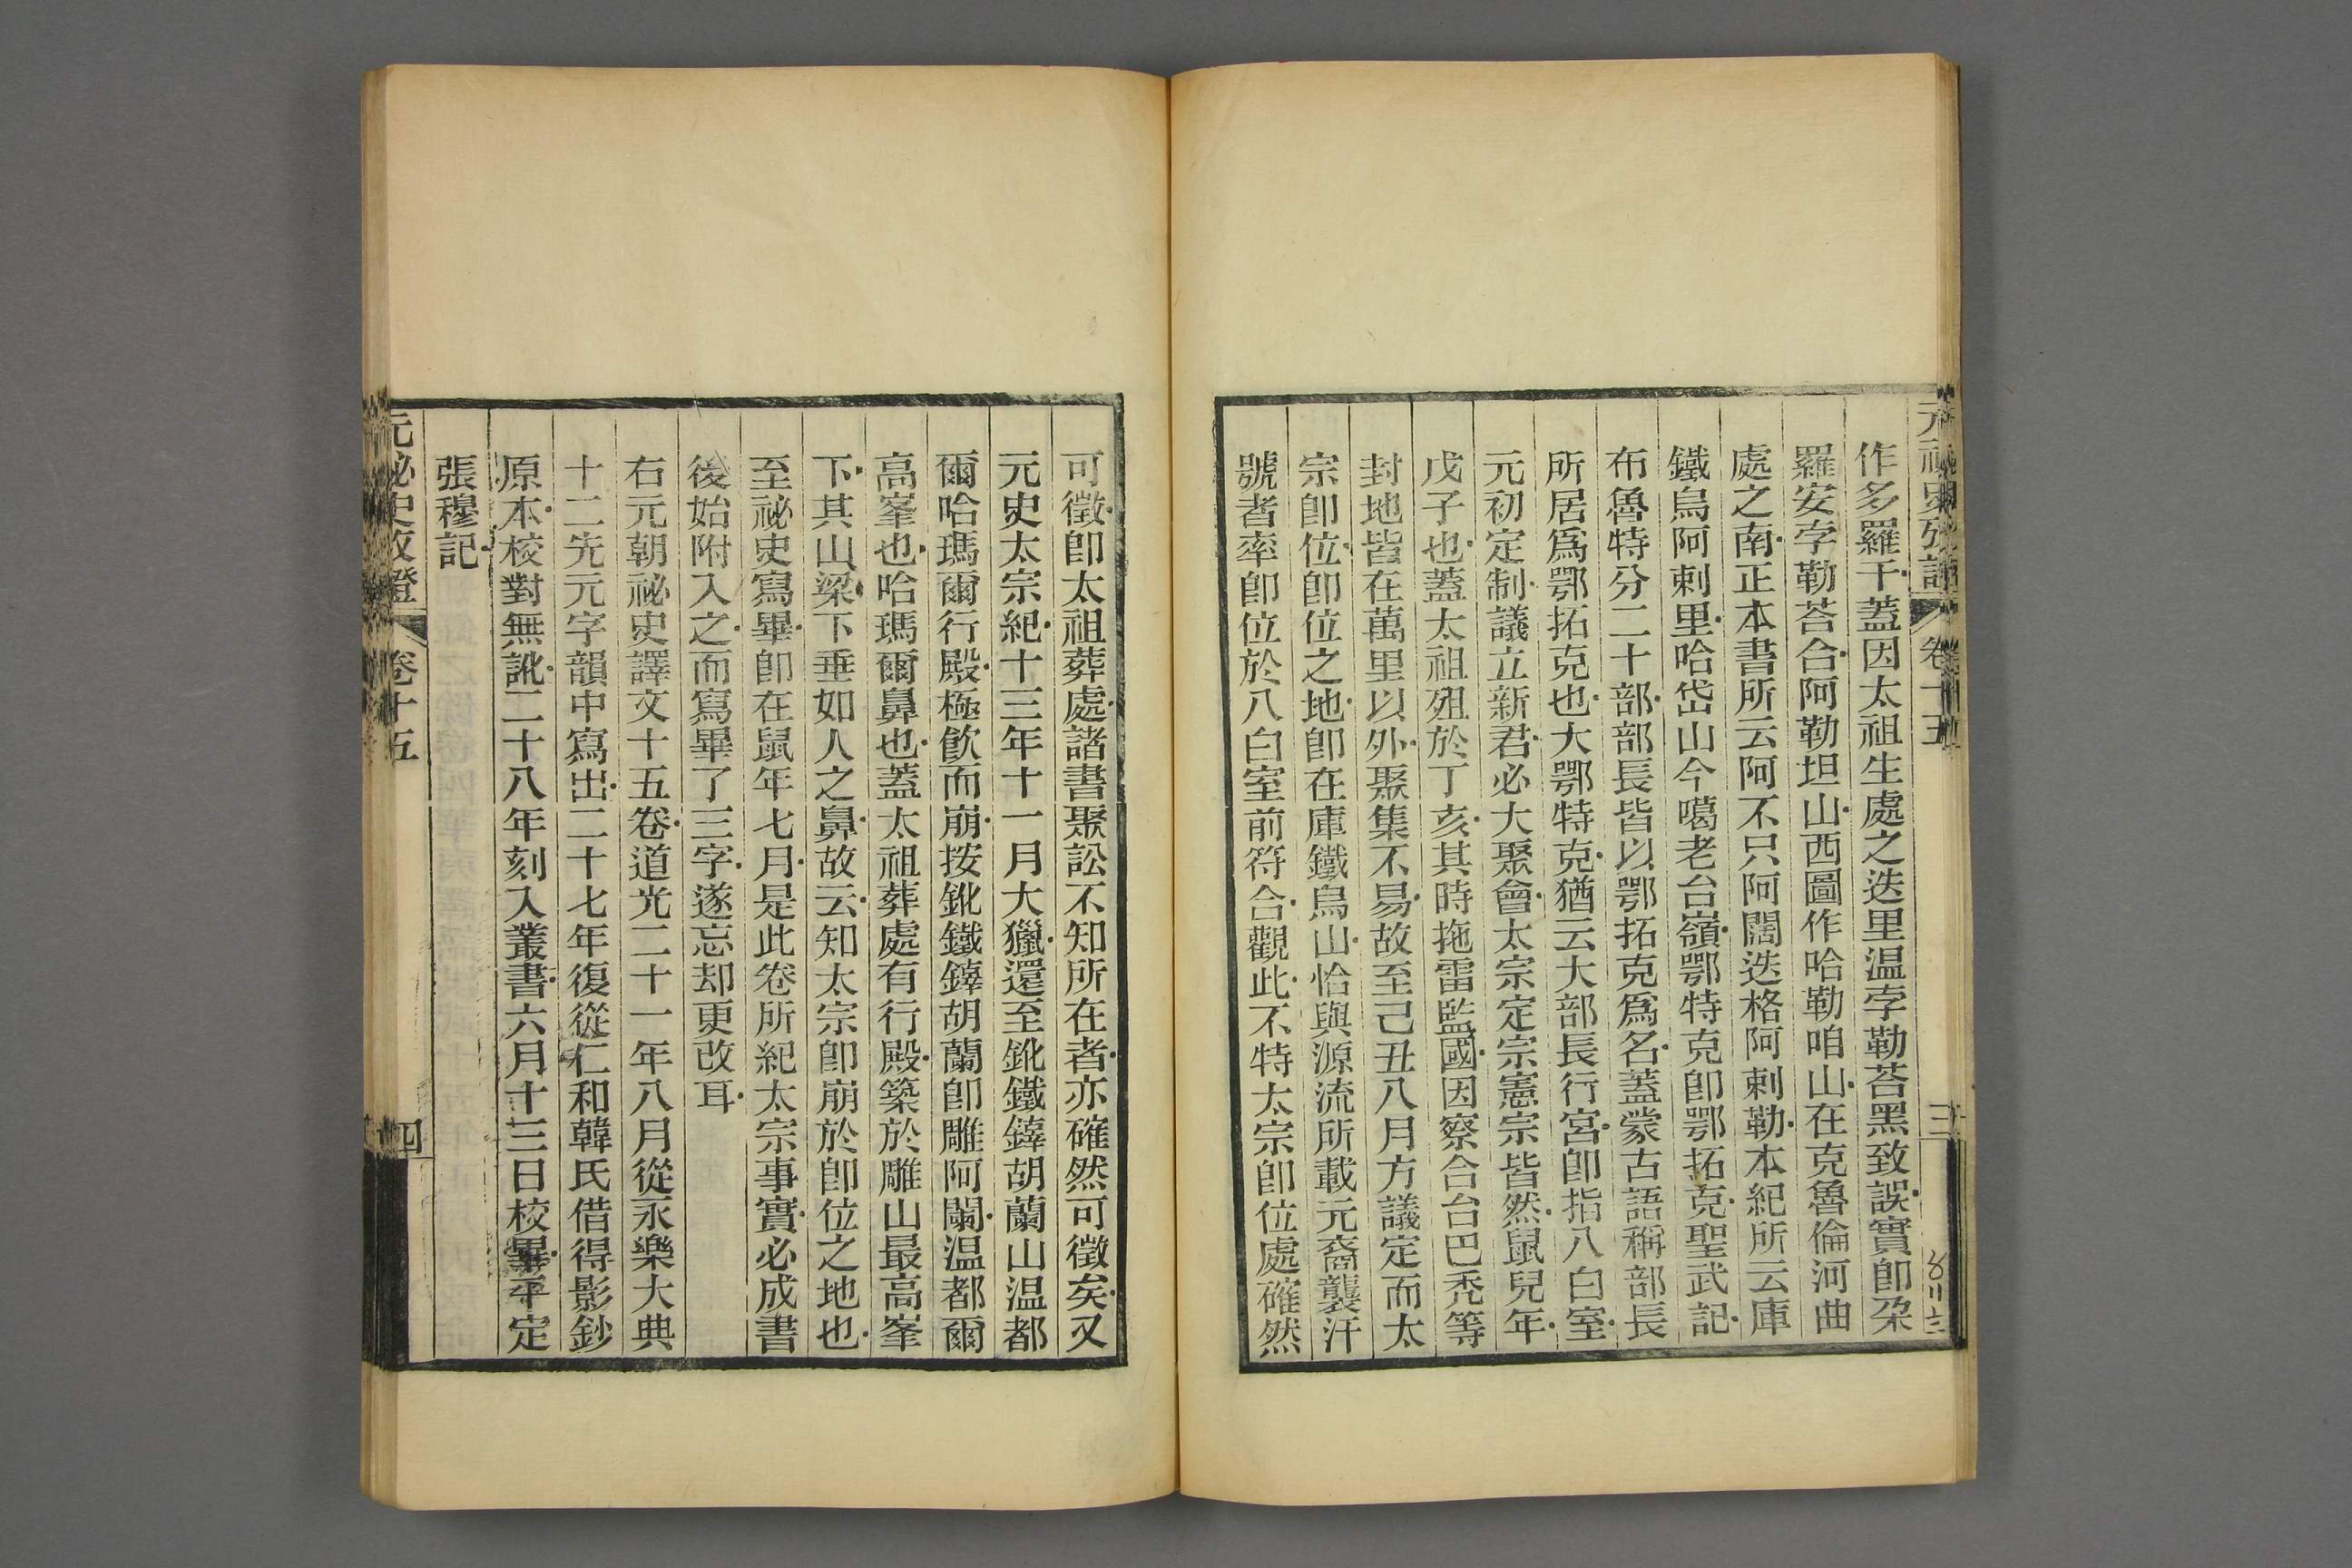 作多羅干蓋因太祖生處之迭里温孛勒荅黑致誤實卽朶
羅安孛勒荅合阿勒坦山西圖作哈勒咱山在克魯倫河曲
處之南正本書所云阿不只阿闊迭格阿剌勒本紀所云庫
鐵烏阿剌里哈岱山今噶老台嶺鄂特克卽鄂拓克聖武記
布魯特分二十部部長皆以鄂拓克爲名蓋蒙古語稱部長
所居爲鄂拓克也大鄂特克猶云大部長行宮卽指八白室
元初定制議立新君必大聚會太宗定宗憲宗皆然鼠兒年
戊子也蓋太祖殂於丁亥其時拖雷監國因察合台巴禿等
封地皆在萬里以外聚集不易故至己丑八月方議定而太
宗卽位卽位之地卽在庫鐵烏山恰與源流所載元裔襲汗
號者率卽位於八白室前符合觀此不特太宗卽位處確然
元祕史攷證 卷十五 三
可徵卽太祖葬處諸書聚訟不知所在者亦確然可徵矣又
元史太宗紀十三年十一月大獵還至鈋鐵𨬟胡蘭山温都
爾哈瑪爾行殿極飮而崩按鈋鐵𨬟胡蘭卽雕阿蘭温都爾
高峯也哈瑪爾鼻也蓋太祖葬處有行殿築於雕山最高峯
下其山梁下垂如人之鼻故云知太宗卽崩於卽位之地也
至祕史寫畢卽在鼠年七月是此卷所紀太宗事實必成書
後始附入之而寫畢了三字遂忘却更改耳
右元朝祕史譯文十五卷道光二十一年八月從永樂大典
十二先元字韻中寫出二十七年復從仁和韓氏借得影鈔
原本校對無訛二十八年刻入叢書六月十三日校畢平定
張穆記
元祕史攷證 卷十五 四